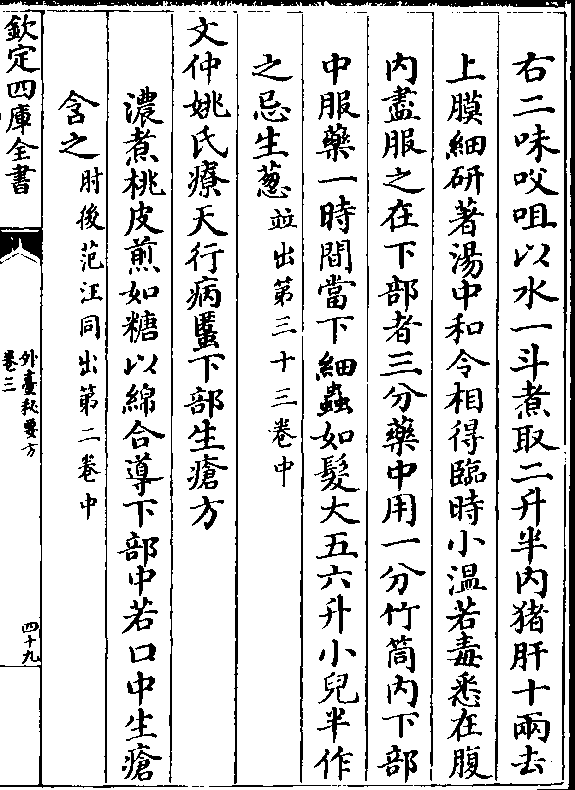 右二味㕮咀以水一斗煮取二升半内猪肝十兩去
上膜細研著湯中和令相得臨時小溫若毒悉在腹
内盡服之在下部者三分藥中用一分竹筒内下部
中服藥一時間當下細蟲如髮大五六升小兒半作
之忌生葱並出第三十三卷中
文仲姚氏療天行病䘌下部生瘡方
濃煮桃皮煎如糖以綿合導下部中若口中生瘡
含之肘後范汪同出第二卷中
欽定四庫全書
外臺秘要方
卷三
四十九